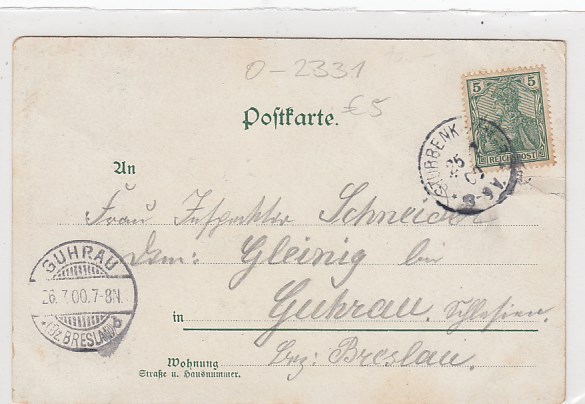 0-2331
€5
Postkarte.
5 5
REICHSPOST
An
Frau Inspektor Schneider
Dom: Gleinig bei
in Guhrau. Schlesien.
Bez: Breslau.
Wohnung
Straße u. Hausnummer.
GUHRAU
26.7.00.7-8N.
*(Bz. BRESLAU) b
25 7
8-9V.